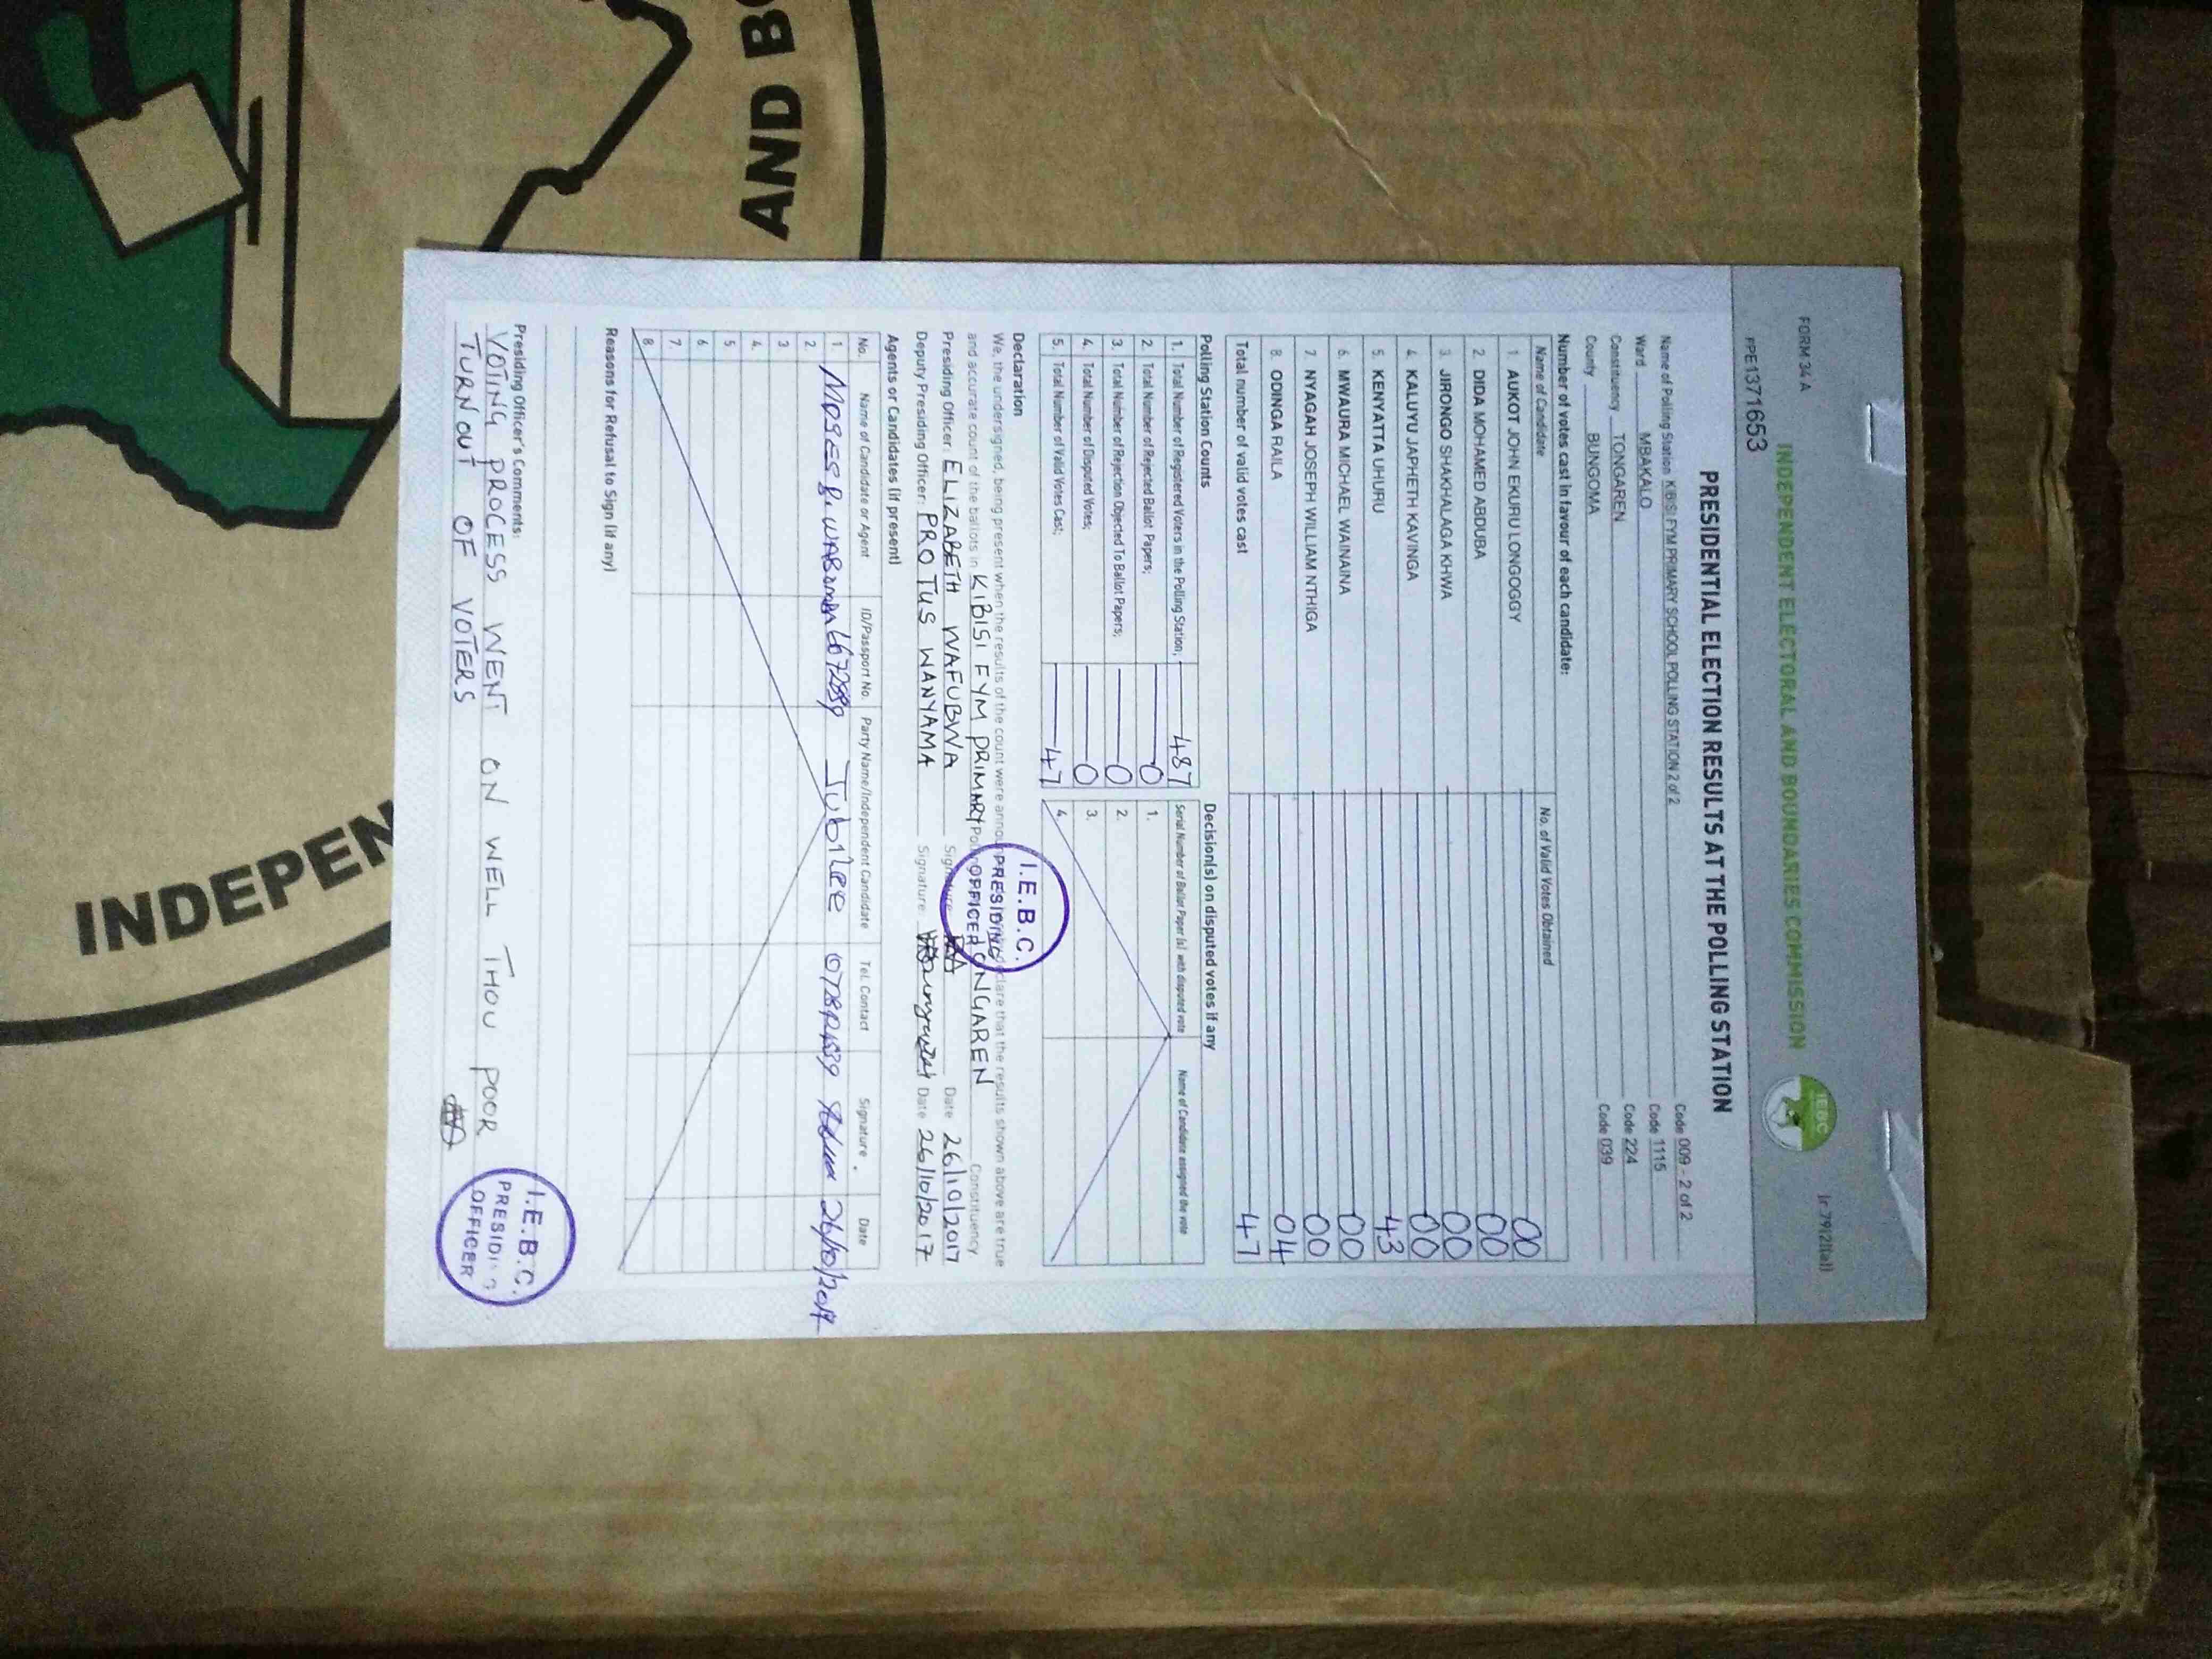 FORM 34 A
(r.79(2)(a))
INDEPENDENT ELECTORAL AND BOUNDARIES COMMISSION
IEBC
PPE1371653
PRESIDENTIAL ELECTION RESULTS AT THE POLLING STATION
Name of Polling Station KIBISI FYM PRIMARY SCHOOL POLLING STATION 2 of 2 Code 009 - 2 of 2
Ward MBAKALO Code 1115
Constituency TONGAREN Code 224
County BUNGOMA Code 039
Number of votes cast in favour of each candidate:
Name of Candidate No. of Valid Votes Obtained
1. AUKOT JOHN EKURU LONGOGGY 00
2. DIDA MOHAMED ABDUBA 00
3. JIRONGO SHAKHALAGA KHWA 00
4. KALUYU JAPHETH KAVINGA 00
5. KENYATTA UHURU 43
6. MWAURA MICHAEL WAINAINA 00
7. NYAGAH JOSEPH WILLIAM NTHIGA 00
8. ODINGA RAILA 04
Total number of valid votes cast 47
Polling Station Counts Decision(s) on disputed votes if any
1. Total Number of Registered Voters in the Polling Station; 487
2. Total Number of Rejected Ballot Papers; 0
3. Total Number of Rejection Objected To Ballot Papers; 0
4. Total Number of Disputed Votes; 0
5. Total Number of Valid Votes Cast; 47
Serial Number of Ballot Paper (s) with disputed vote Name of Candidate assigned the vote
1.
2.
3.
4.
Declaration
We, the undersigned, being present when the results of the count were declare that the results shown above are true
and accurate count of the ballots in KIBISI FYM PRIMARY Constituency
Presiding Officer: ELIZABETH WAFUBWA Signature Date 26/10/2017
Deputy Presiding Officer: PROTUS WANYAMA Signature Date 26/10/2017
I.E.B.C.
PRESIDING
OFFICER
Agents or Candidates (if present)
No. Name of Candidate or Agent ID/Passport No. Party Name/Independent Candidate Tel. Contact Signature Date
1. MOSES Jubilee 26/10/2017
2.
3
4.
5
6
7.
8.
Reasons for Refusal to Sign (if any)
Presiding Officer's Comments:
VOTING PROCESS WENT ON WELL THOU POOR
TURN OUT OF VOTERS
I.E.B.C.
PRESIDING
OFFICER
AND BO
INDEPEN